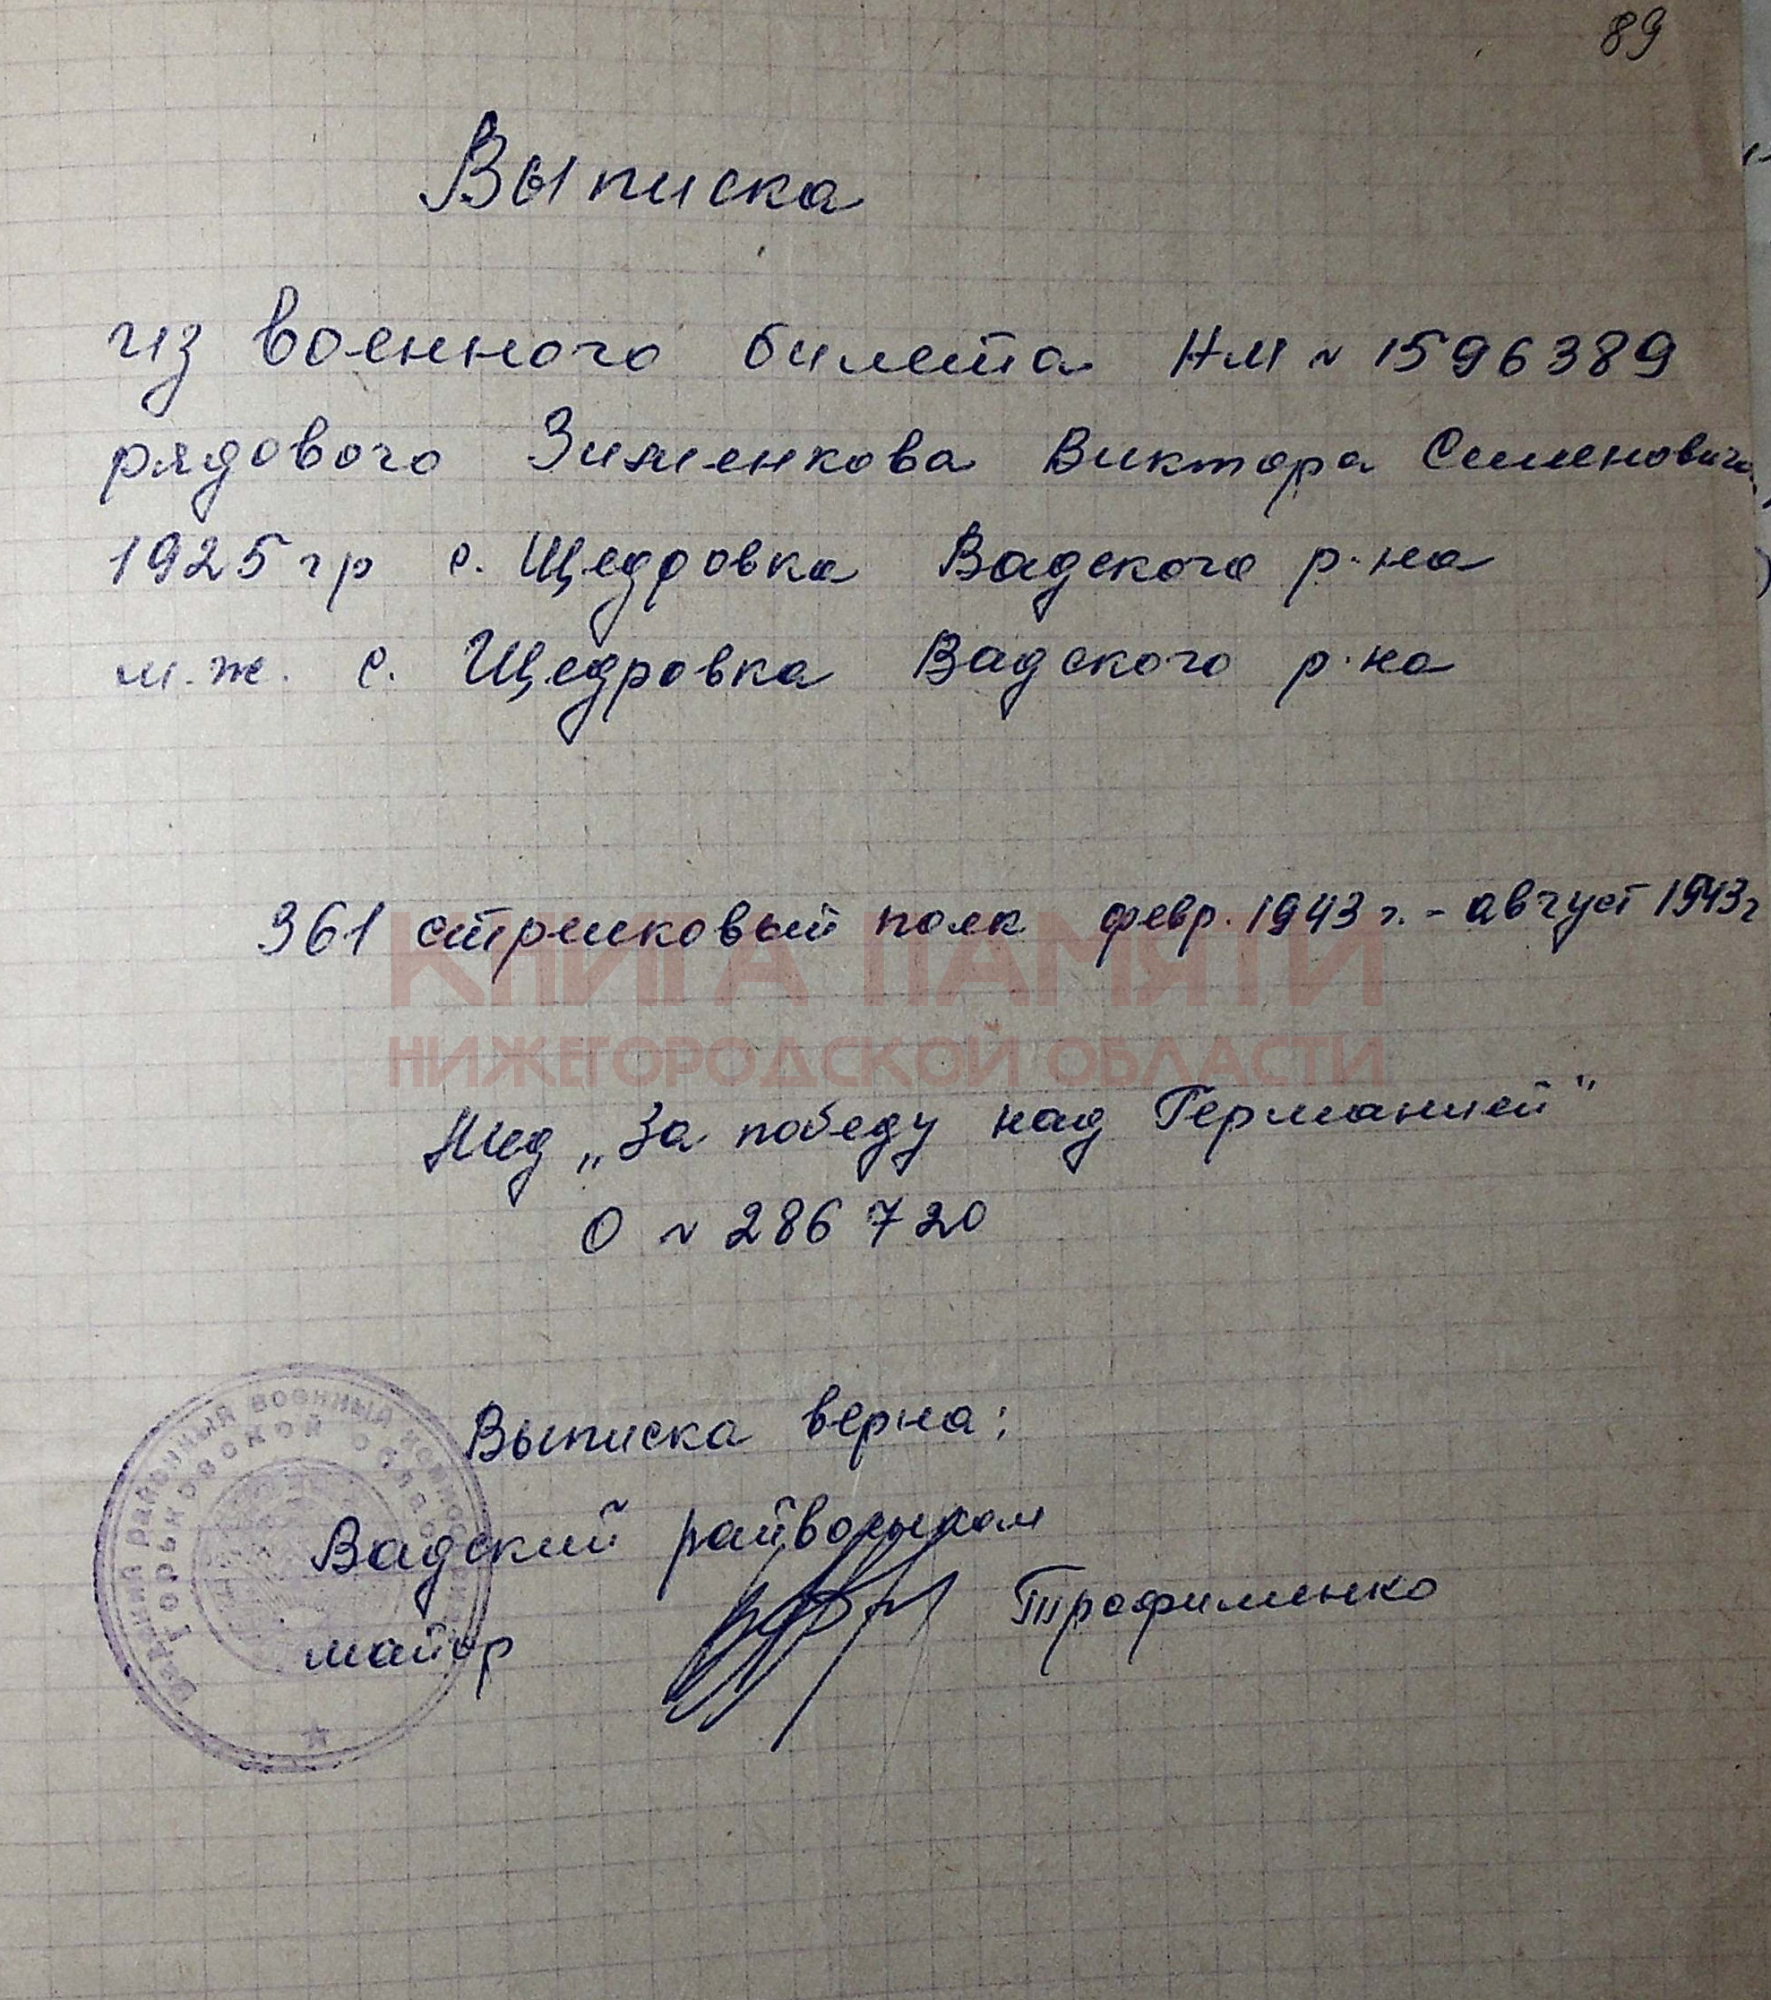 89
Выписка
из военного билета НМ № 1596389
рядового Зименкова Виктора Семеновича
1925 гр с. Щедровка Вадского р-на
м.ж. с. Щедровка Вадского р-на
361 стрелковый полк февр. 1943 г. - август 1943 г
КНИГА ПАМЯТИ
НИЖЕГОРОДСКОЙ ОБЛАСТИ
Мед „За победу над Германией"
О № 286720
Выписка верна:
Вадский райвоенком
майор Трофименко
Вадский районный военный комиссариат
Горьковской области